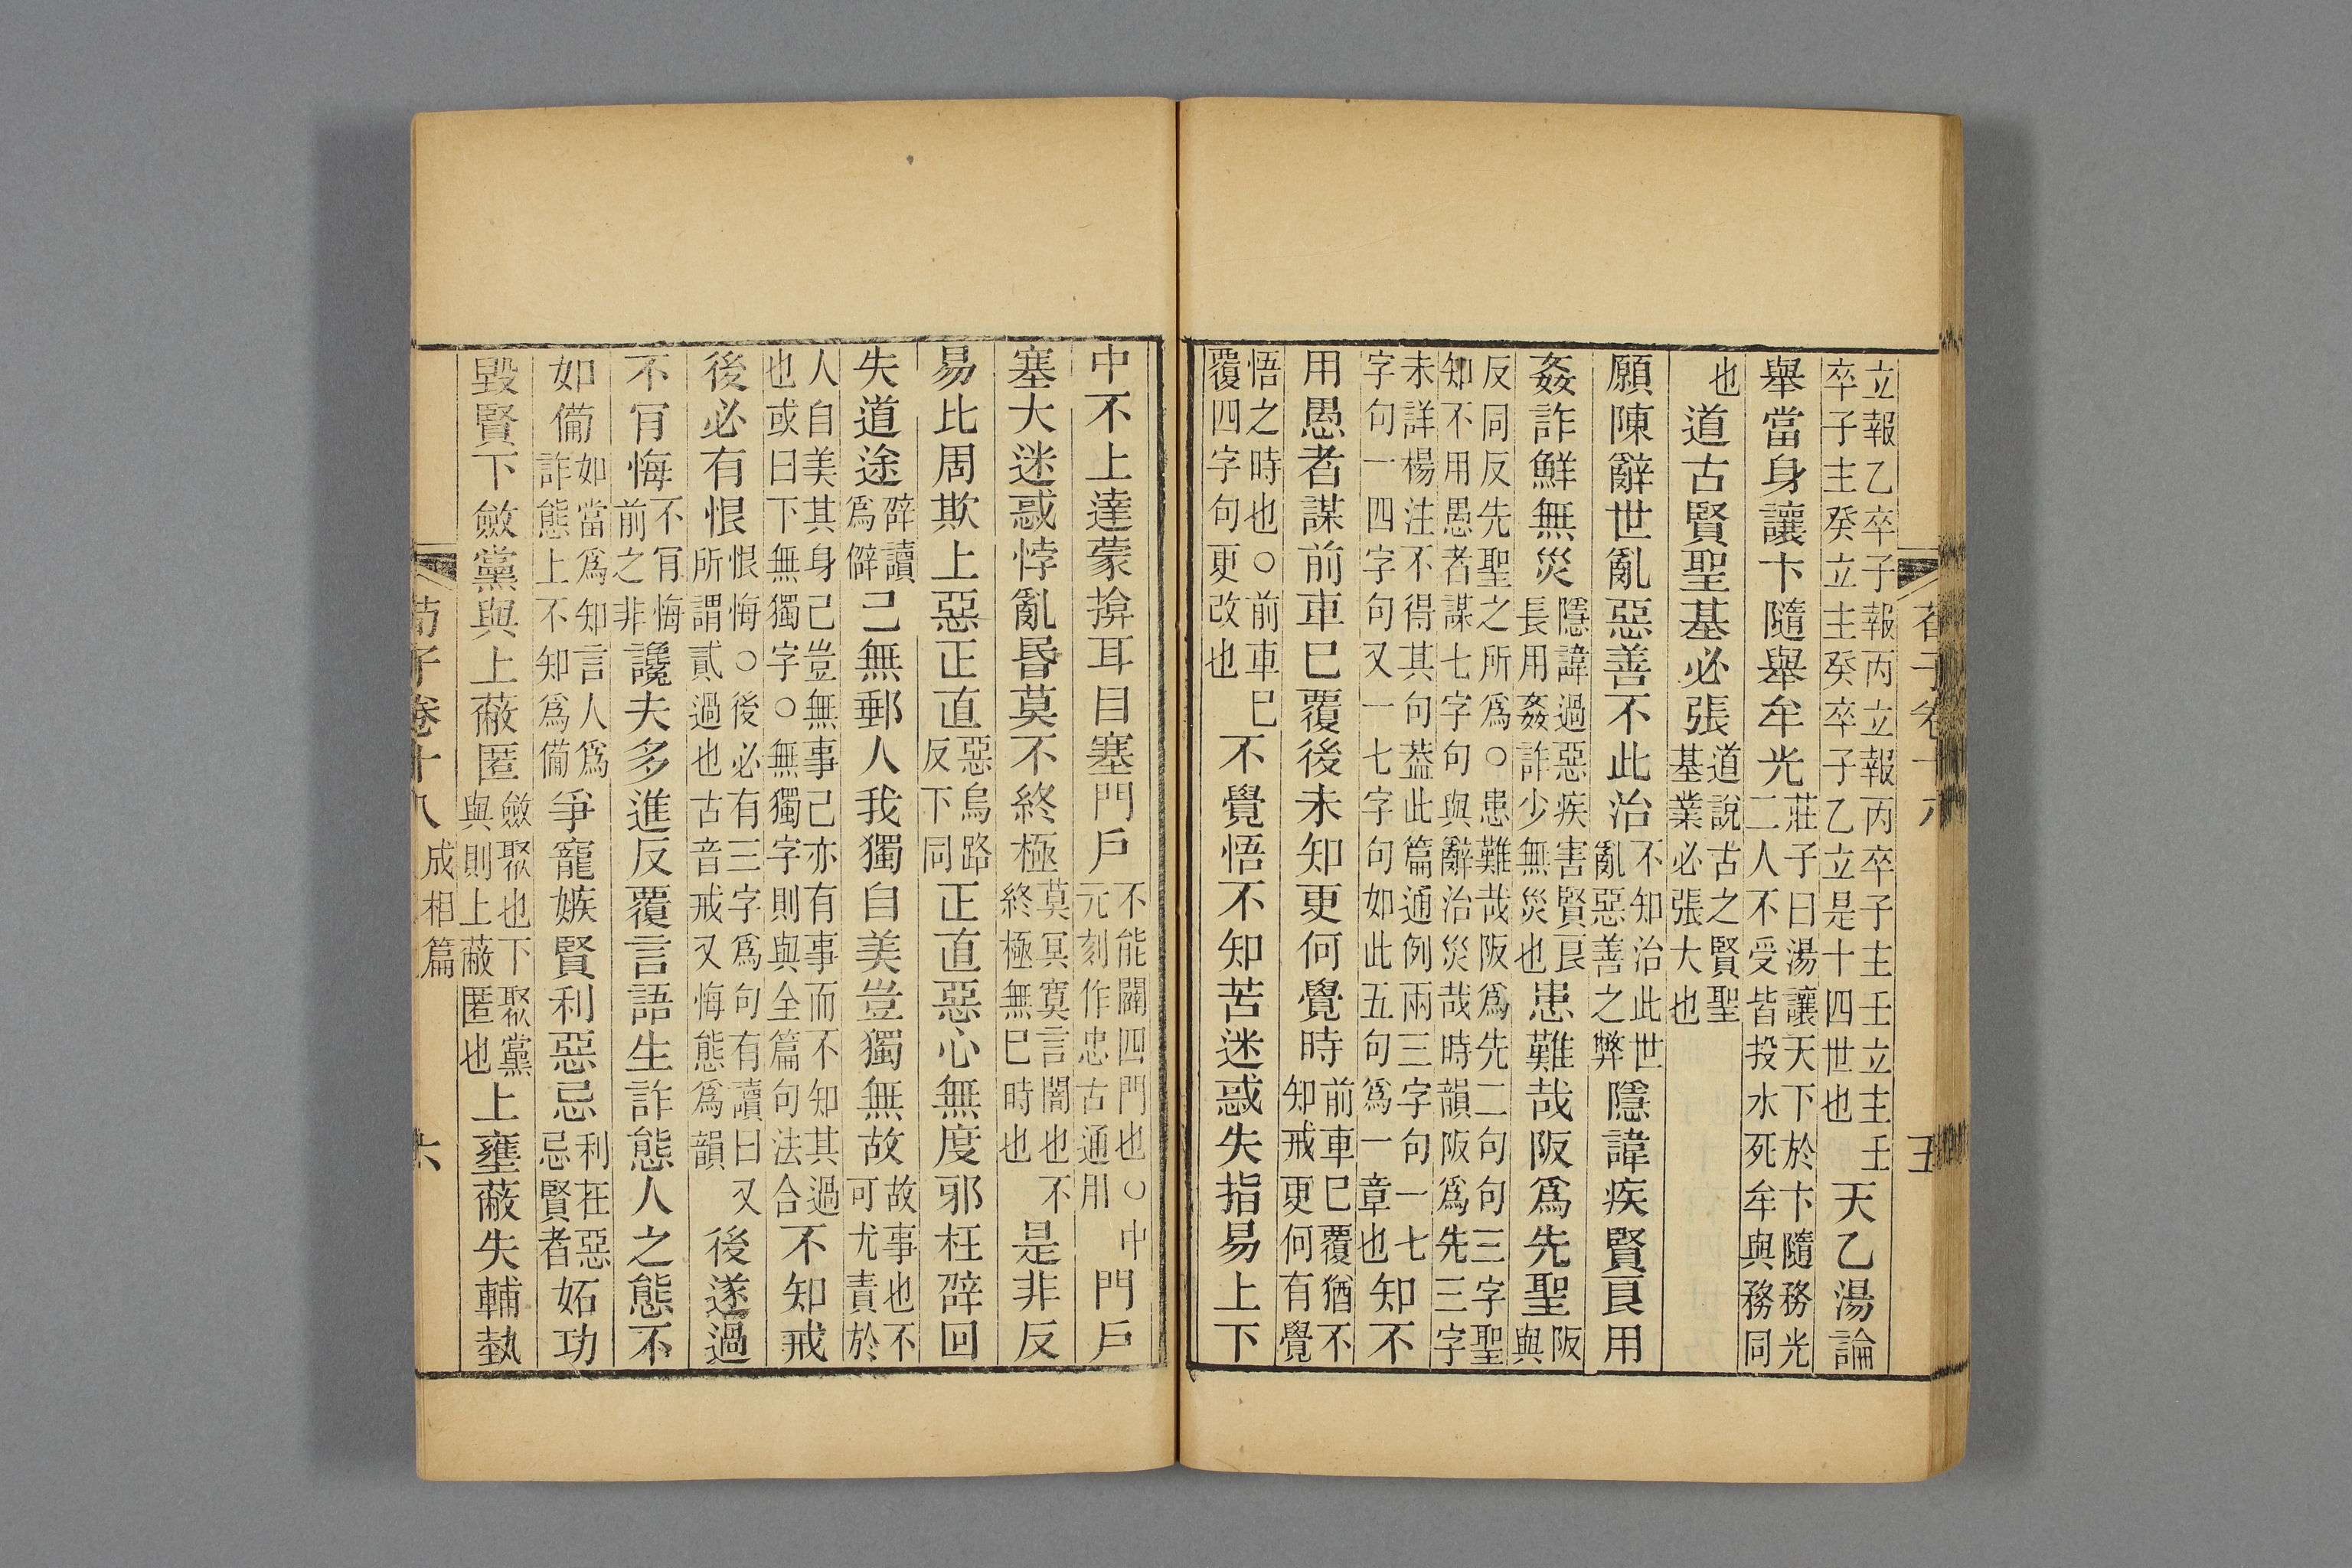 荀子卷十八 五
立報乙卒子報丙立報丙卒子主壬立主壬
卒子主癸立主癸卒子乙立是十四世也
天乙湯論
舉當身讓卞隨舉牟光
莊子曰湯讓天下於卞隨務光
二人不受皆投水死牟與務同
也
道古賢聖基必張
道說古之賢聖
基業必張大也
願陳辭世亂惡善不此治
不知治此世
亂惡善之弊
隱諱疾賢良用
姦詐鮮無災
隱諱過惡疾害賢良
長用姦詐少無災也
患難哉阪爲先聖
阪
與
反同反先聖之所爲○患難哉阪爲先二句句三字聖
知不用愚者謀七字句與辭治災哉時韻阪爲先三字
未詳楊注不得其句葢此篇通例兩三字句一七
字句一四字句又一七字句如此五句爲一章也
知不
用愚者謀前車已覆後未知更何覺時
前車已覆猶不
知戒更何有覺
悟之時也○前車已
覆四字句更改也
不覺悟不知苦迷惑失指易上下
中不上達蒙揜耳目塞門戶
不能闢四門也○中
元刻作忠古通用
門戶
塞大迷惑悖亂昬莫不終極
莫冥寞言闇也不
終極無已時也
是非反
易比周欺上惡正直
惡烏路
反下同
正直惡心無度邪枉辟回
失道途
辟讀
爲僻
己無郵人我獨自美豈獨無故
故事也不
可尤責於
人自美其身己豈無事己亦有事而不知其過
也或曰下無獨字○無獨字則與全篇句法合
不知戒
後必有恨
恨悔○後必有三字爲句有讀曰又
所謂貳過也古音戒又悔態爲韻
後遂過
不肎悔
不肎悔
前之非
讒夫多進反覆言語生詐態人之態不
如備
如當爲知言人爲
詐態上不知爲備
爭寵嫉賢利惡忌
利在惡
忌賢者
妬功
毀賢下斂黨與上蔽匿
斂聚也下聚黨
與則上蔽匿也
上壅蔽失輔埶
荀子卷十八 成相篇 六